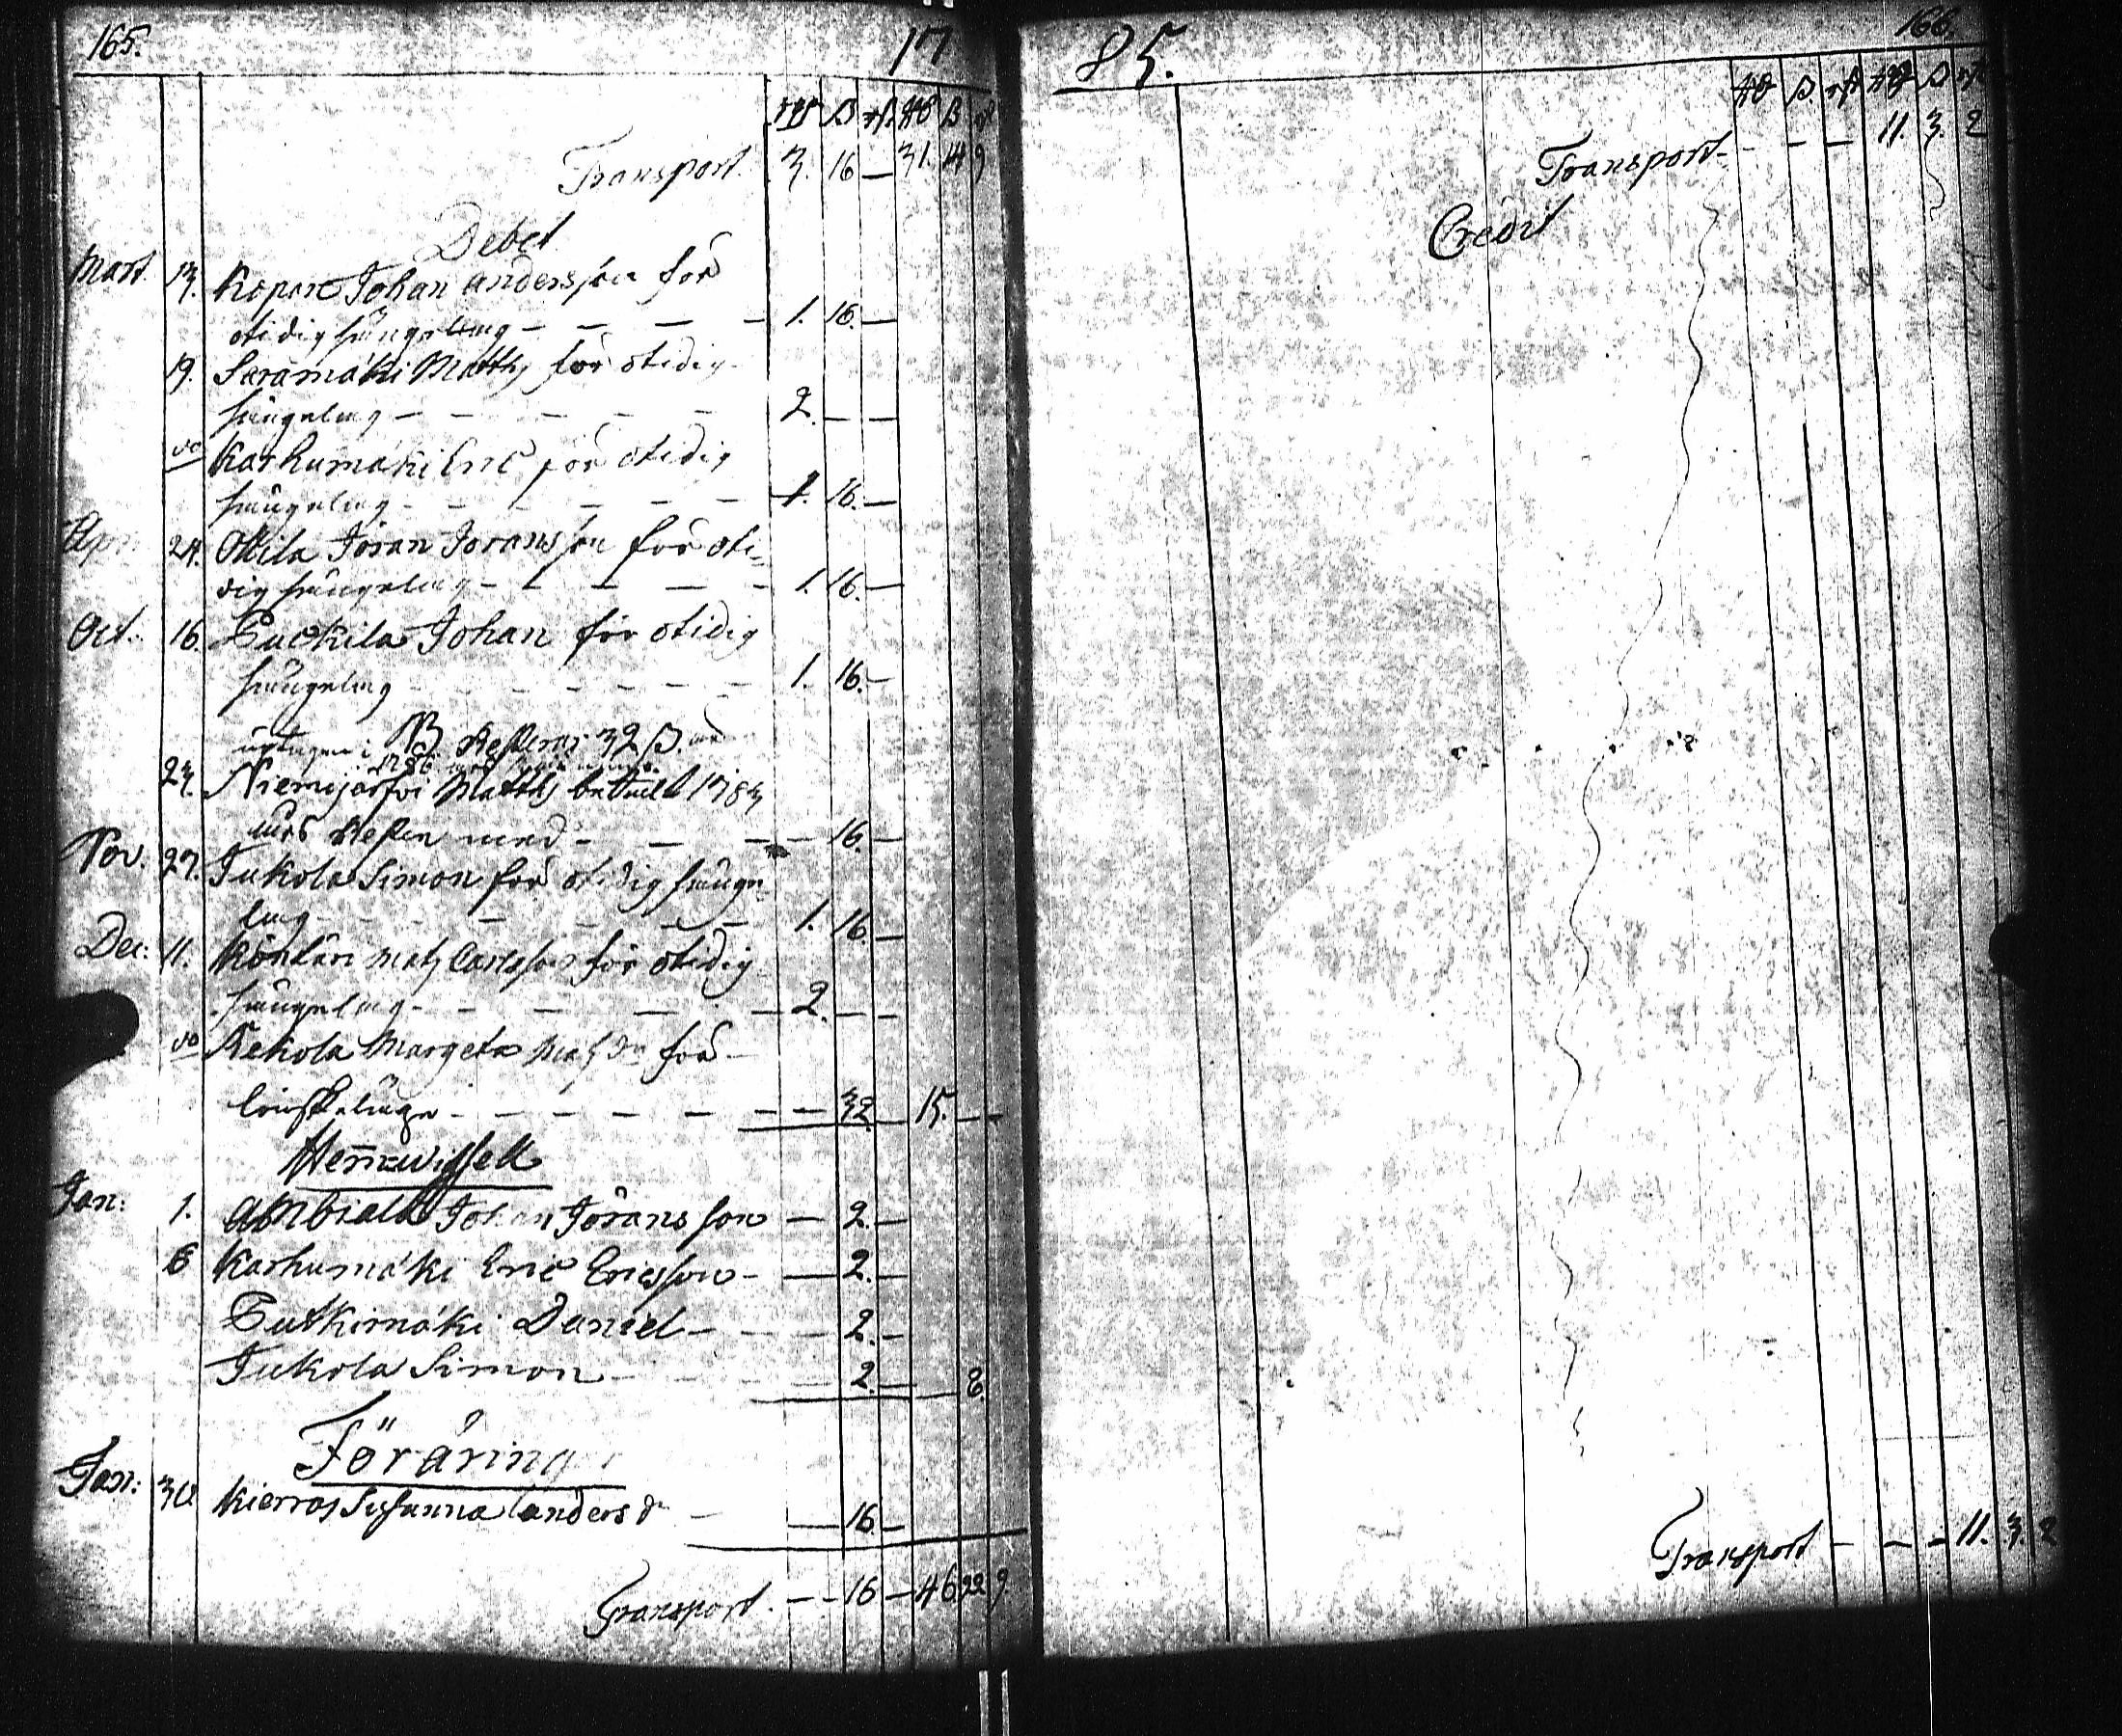 165. 17
Rd ß rst Rd ß rst
Transport. 3. 16 — 31. 14 9
Debet
Mart. 13. Kopare Johan Andersson för
otidig sängelag — — — — 1. 16. —
19. Saramäki Matths för otidig
sängelag — — — — — 2. — —
do Karhumäki Eric för otidig
sängelag — — — — 1. 16. —
Apr: 24. Åkila Jöran Joransson för oti-
dig sängelag — — — — 1. 16. —
Oct. 16. Puckila Johan för otidig
sängelag — — — — — 1. 16. —
uptagen i NB Resterar 32 ß.
1786
23. Niemijärfvi Matths betalt 1783
års Resten med — — — — 16. —
Nov. 27. Jukola Simon för otidig sänge
lag — — — — — 1. 16. —
Dec: 11. Köntäri Mats Carlsson för otidig
sängelag — — — — — 2. — —
do Rekola Margeta Mats dr för
— — — — — — 32. — 15. — —
Hemwissell
Jan: 1. Ambiala Johan Jöransson — 2. —
6 Karhumäki Eric Ericsson — — 2. —
Putkimäki Daniel — — — 2. —
Jukola Simon — — — — 2. — — 8.
Föräringar
Jan: 30. Kierras Susanna Anders dr — — 16. —
Transport. — — 16 — 46 22 9
85. 166.
Rd ß. rst Rd ß rst
Transport — — — — 11. 3. 2
Credit
Transport — — — 11. 3. 2